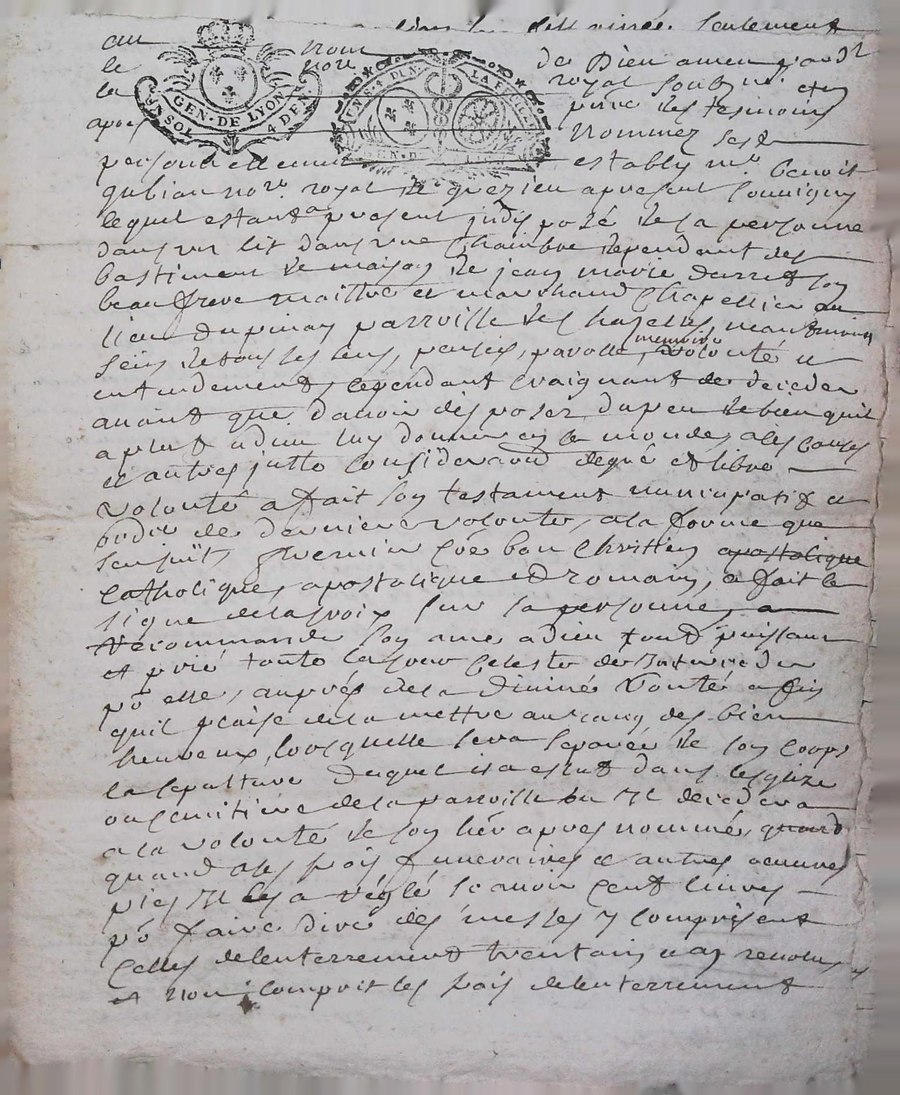 seulement
au nom de Dieu amen pard^t
le no^re royal soub^né et
la p^nce des tesmoins
apres nommez fest
GEN · DE LYON
UN SOL 4 DEN
LA FEUILLE
personnellement estably m^e benoit
gubian no^re royal de grezieu apresent souvigny
lequel estant apresent indisposé de sa personne
dans un lit dans une chambre dependant des
bastiment de maison de jean marie darret son
beau frere maittre et marchand chapellier au
lieu dupinay parroisse des hazelles, neantmoins
sein de tous ses sens, pensée, parolle, memoire volonté et
entendement, cependant craignant de deceder
avant que davoir disposer dupeu de bien quil
a plut a dieu luy donner en ce monde, a ces causes
et autres justto considerand degré et libre
volonté a fait son testament nuncupatif et
ordre de derniere volonté, a la forme que
sensuit, premier coe bon chrittien apostolique
catholique, apostolique et romain, a fait le
signe de la croix sur sa personne, a
recommandé son ame a dieu tout puissant
et prié toute la cour celeste de
po^r elle, auprés de la divine bonté afin
quil plaise de la mettre au rang des bien
heureux, lorsquelle sera separée de son corps
la sepulture duquel il a eslut dans lesglize
ou cemitiere de la parroisse ou Il decedera
a la volonté de son hér apres nommé, quand
quand a ses frais funeraires et autres oeuvres
pies Il les a réglé scavoir cent livres
po^r faire dire des messes y comprisent
celles de lenterrement trentain
et non comprit les frais de lenterrement